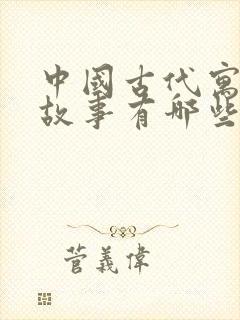 中國古代寓
故事有哪些
菅義偉